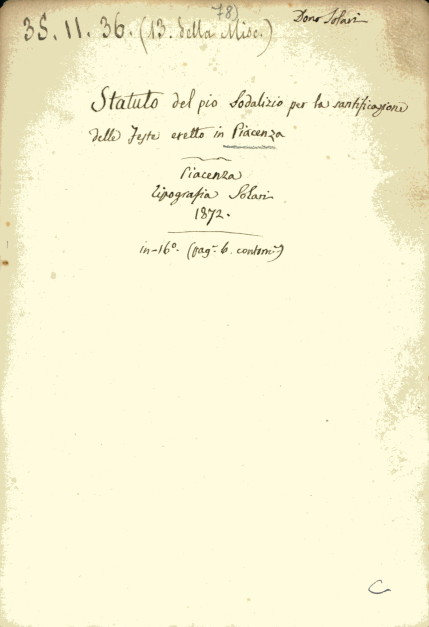 78)
3S. 11. 36. (13. della Misc.)
Dono Solari
Statuto del pio Sodalizio per la santificazione
delle Feste eretto in Piacenza
Piacenza
Tipografia Solari
1872.
in-16°. (pag. 6. contorn.)
C